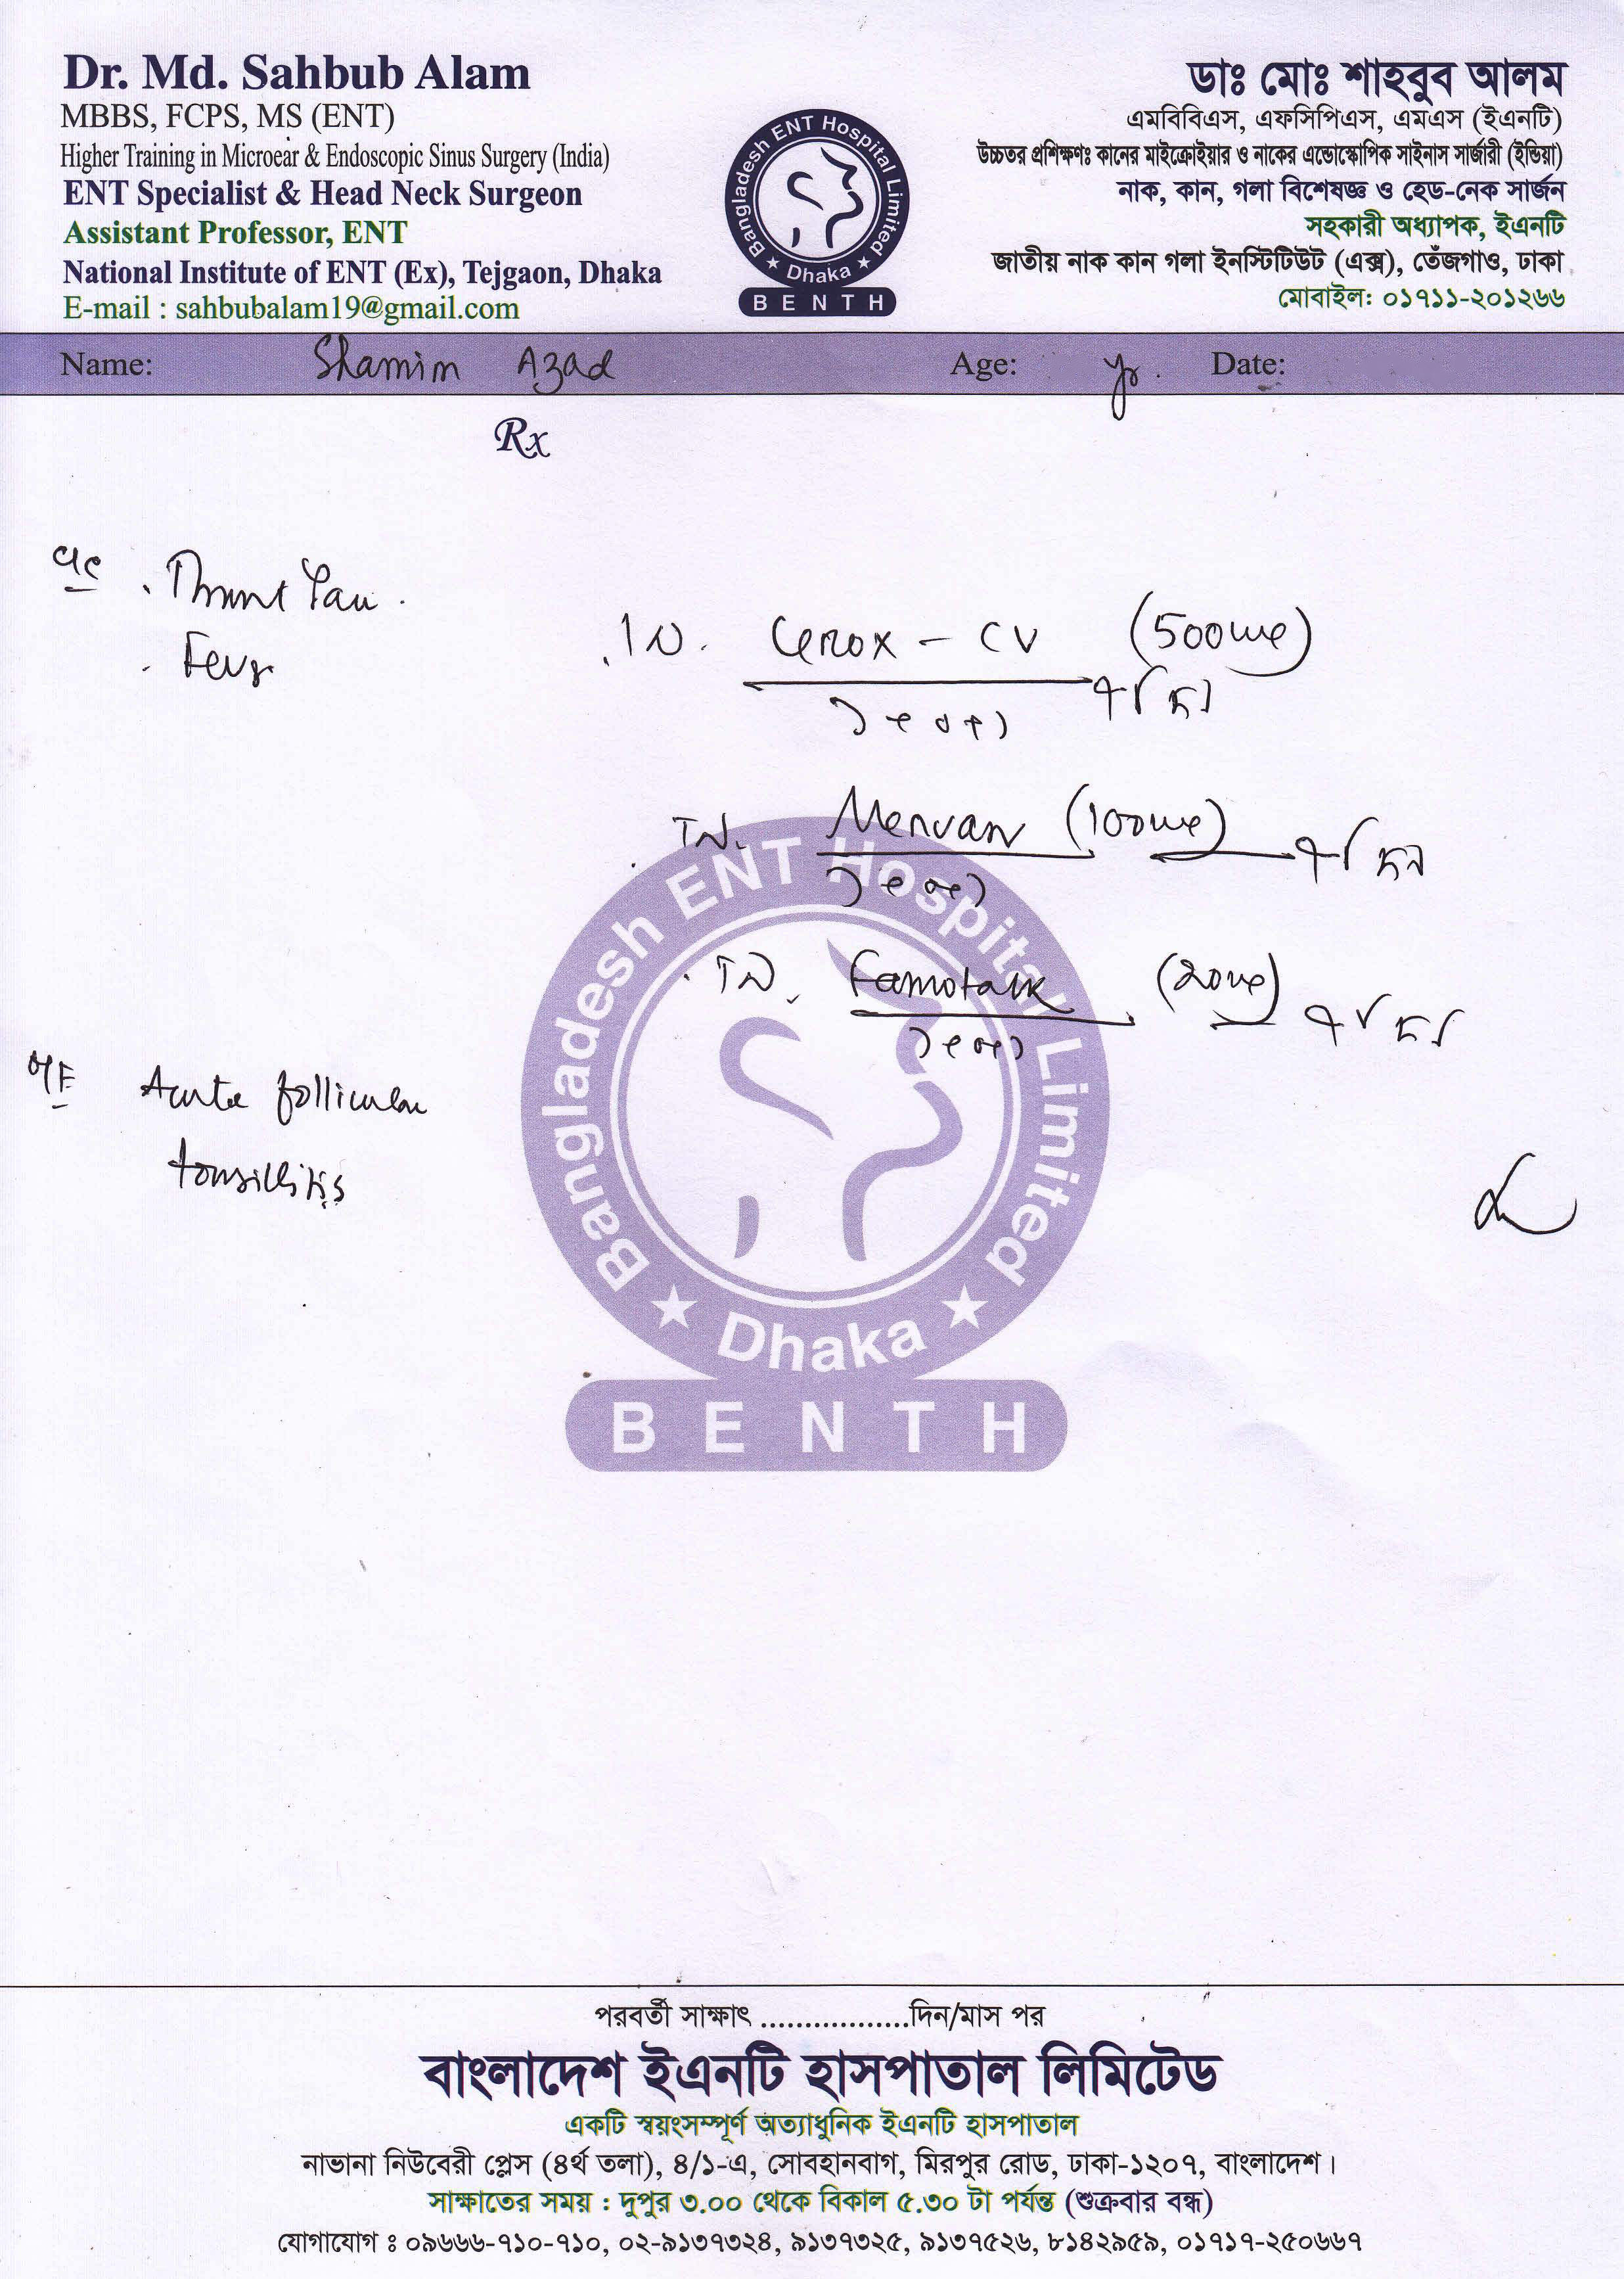 Dr. Md. Sahbub Alam
MBBS, FCPS, MS (ENT)
Higher Training in Microear & Endoscopic Sinus Surgery (India)
ENT Specialist & Head Neck Surgeon
Assistant Professor, ENT
National Institute of ENT (Ex), Tejgaon, Dhaka
E-mail : sahbubalam19@gmail.com
Bangladesh ENT Hospital Limited
Dhaka
BENTH
ডাঃ মোঃ শাহবুব আলম
এমবিবিএস, এফসিপিএস, এমএস (ইএনটি)
উচ্চতর প্রশিক্ষণঃ কানের মাইক্রোইয়ার ও নাকের এন্ডোস্কোপিক সাইনাস সার্জারী (ইন্ডিয়া)
নাক, কান, গলা বিশেষজ্ঞ ও হেড-নেক সার্জন
সহকারী অধ্যাপক, ইএনটি
জাতীয় নাক কান গলা ইনস্টিটিউট (এক্স), তেঁজগাও, ঢাকা
মোবাইল: ০১৭১১-২০১২৬৬
Name: Shamim Azad Age: yr. Date:
Rx
C/C . Throat Pain .
. Fever
Cerox - CV (500mg)
(100mg)
Famotack (20mg)
O/E Acute follicular
tonsillitis
Bangladesh ENT Hospital Limited
Dhaka
BENTH
পরবর্তী সাক্ষাৎ .................দিন/মাস পর
বাংলাদেশ ইএনটি হাসপাতাল লিমিটেড
একটি স্বয়ংসম্পূর্ণ অত্যাধুনিক ইএনটি হাসপাতাল
নাভানা নিউবেরী প্লেস (৪র্থ তলা), ৪/১-এ, সোবহানবাগ, মিরপুর রোড, ঢাকা-১২০৭, বাংলাদেশ।
সাক্ষাতের সময় : দুপুর ৩.০০ থেকে বিকাল ৫.৩০ টা পর্যন্ত (শুক্রবার বন্ধ)
যোগাযোগ ঃ ০৯৬৬৬-৭১০-৭১০, ০২-৯১৩৭৩২৪, ৯১৩৭৩২৫, ৯১৩৭৫২৬, ৮১৪২৯৫৯, ০১৭১৭-২৫০৬৬৭